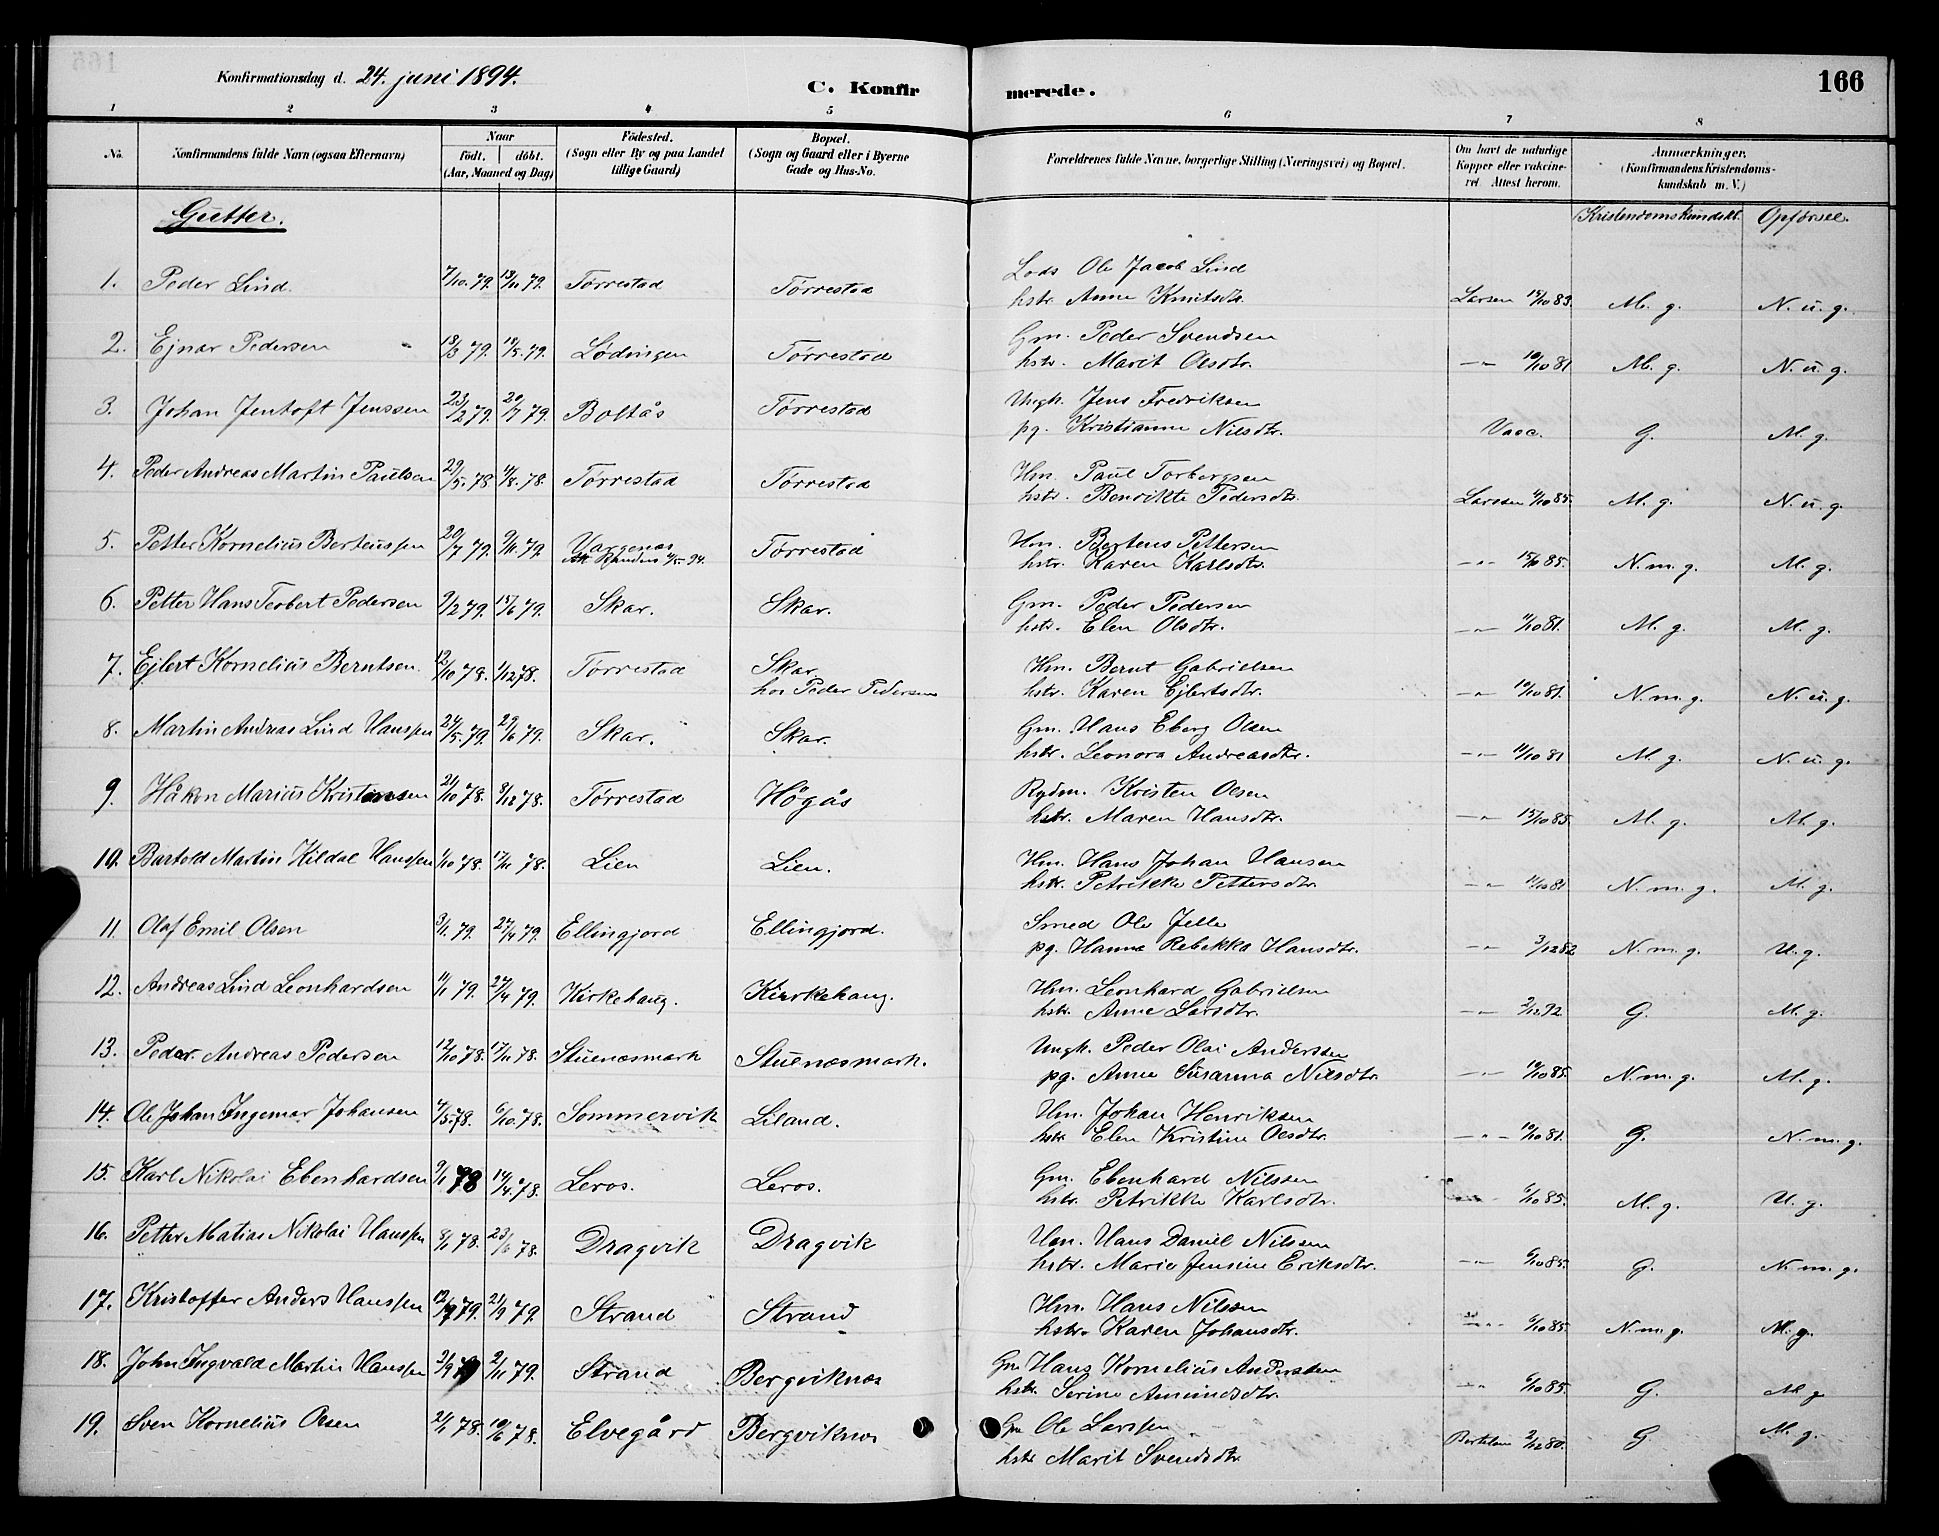 Konfirmationsdag d. 24. juni 1894.
C. Konfirmerede.
166
1 2 3 4 5 6 7 8
No. Konfirmandens fulde Navn (ogsaa Efternavn) Naar født. døbt. (Aar, Maaned og Dag) Födested. (Sogn eller By og paa Landet tillige Gaard) Bopæl. (Sogn og Gaard eller i Byerne Gade og Hus-No. Forældrenes fulde Navne, borgerlige Stilling (Næringsvei) og Bopæl. Om havt de naturlige Kopper eller vakcineret. Attest herom. Anmærkninger. (Konfirmandens Kristendomskundskab m. V.)
Gutter. Kristendomskundskb. Opførsel.
1. Peder Lind. 7/10.79. 13/11 79. Tørrestad Tørrestad Lods Ole Jacob Lind
hstr. Anne Knutsdtr. Larsen 15/10 83. M. g. N. u. g.
2. Ejnar Pedersen 13/3 79. 18/5.79. Lødingen Tørrestad Gm. Peder Svendsen
hstr. Marit Olsdtr. -"- 10/10 81 M. g. N. u. g.
3. Johan Jentoft Jenssen 23/2 79. 20/7 79. Boltås Tørrestad Ungk. Jens Fredriksen
pg. Kristianne Nilsdtr. Vacc. G. M. g.
4. Peder Andreas Martin Paulsen 29/5.78 4/8.78. Tørrestad Tørrestad Hm. Paul Torbergsen
hstr. Benrikte Pedersdtr. Larssen 4/10 85. M. g. N. u. g.
5. Petter Kornelius Berteussen 20/7 79. 9/11.79. Vargenæs Tørrestad Hm. Berteus Pettersen
hstr. Karen Karlsdtr. -"- 15/10 85. N. m. g. M. g.
6. Petter Hans Teobert Pedersen 9/2 79. 15/6 79. Skar. Skar. Gm. Peder Pedersen
hstr. Elen Olsdtr. -"- 11/10 81. M. g. M. g.
7. Ejlert Kornelius Berntsen. 12/10 78. 1/12 78. Tørrestad Skar. Hm. Bernt Gabrielsen
hos Peder Pedersen hstr. Karen Ejlertsdtr. -"- 10/10 81. N. m. g. N. u. g.
8. Martin Andreas Lind Hanssen 24/5.79. 29/6 79. Skar. Skar. Gm. Hans Eberg Olsen
hstr. Leonora Andreasdtr. -"- 11/10 81 M. g. N. u. g.
9. Håkon Marius Kristensen 21/10 78. 8/12 78. Tørrestad Høgås Rydm. Kristen Olsen
hstr. Maren Hansdtr. -"- 15/10 85. M. g. M. g.
10. Bartold Martin Kildal Hanssen 1/10 78. 17/11 78. Lien Lien. Hm. Hans Johan Hansen
hstr. Petrikke Pettersdtr. -"- 11/10 81 N. m. g. M. g.
11. Olaf Emil Olsen 3/1. 79. 27/4 79. Ellingjord Ellingjord. Smed Ole Jelle
pg. Hanna Rebekka Hansdtr. -"- 3/12 82 N. m. g. U. g.
12. Andreas Lind Leonhardsen 11/1 79. 27/4 79. Kirkehaug. Kirkehaug. Hm. Leonhard Gabrielsen
hstr. Anne Larsdtr. -"- 2/12.92 G. M. g.
13. Peder Andreas Pedersen 12/10 78. 17/11 78. Stuenæsmark Stuenæsmark. Ungk. Peder Olai Anderssen
pg. Anne Susanna Nilsdtr. -"- 10/10 85. N. m. g. M. g.
14. Ole Johan Ingemar Johansen 4/5.78. 6/10.78. Sommervik Liland. Hm. Johan Henriksen
hstr. Elen Kristine Olsdtr. -"- 10/10 81. G. N. m. g.
15. Karl Nikolai Ebenhardsen 9/1 78 14/4.78. Leros. Leros. Gm. Ebenhard Nilssen
hstr. Petrikke Karlsdtr. -"- 6/10 85. M. g. U. g.
16. Petter Matias Nikolai Hanssen 8/1 78. 23/6 78. Dragvik Dragvik Hm. Hans Daniel Nilssen
hstr. Marie Jensine Eriksdtr. -"- 6/10 85. G. N. m. g.
17. Kristoffer Anders Hanssen 12/7 79. 21/9 79. Strand Strand Hm. Hans Nilssen
hstr. Karen Johansdtr. -"- 6/10 85. N. m. g. M. g.
18. John Ingvald Martin Hanssen 21/9 79 2/11 79. Strand Bergviknes Gm Hans Kornelius Anderssen
hstr. Serine Amundsdtr. -"- 6/10 85. G. M. g
19. Sven Kornelius Olsen 21/1 78. 10/6 78. Elvegård Bergviknes Gm Ole Larssen
hstr Marit Svendsdtr Bertelsen 2/12 80. G. M. g.